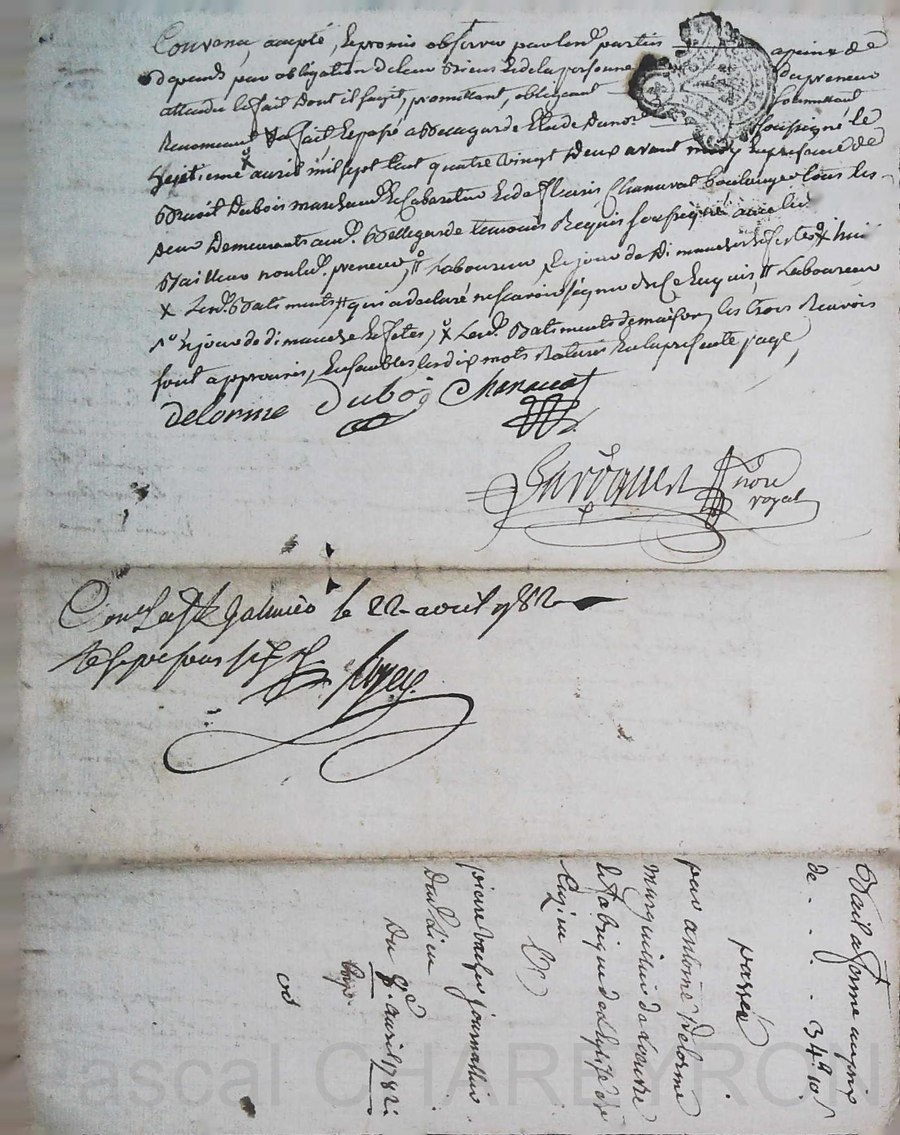 Convenu, accepté, & promis observer par lesd. parties apeine de
depends par obligation de leur Biens & de la personne Du preneur
attendu le fait Dont il s'agit, promettant, obligeant Soumettant
Renonceant & fait & passé a Bellegarde Etude Du not. soussigné le
Septieme avril mil sept Cent quatre vingt Deux avant midy En presence de
Benoit Dubois marchand & Cabaretier & de fleuris Chanavat boulanger tous les
deux Demeurants aud. Bellegarde temoins Requis soussignés avec led.
preneur, # Laboureur, & jour de Dimanche & fetes
X Lesd. Batiments # qui a declaré ne savoir signer de ce Enquis # Laboureur
& jour de dimanche & fetes, X Lesd. Batiments de maison, les trois Renvois
sont approuvés, Ensembles les dix mots Raturés En la presente page,
delorme Dubois Chanavat
nore
royal
Con.lé a St Galmier le 22 avril 1782
Bail a ferme au prix
de . . . . 34# 10s
passé
par antoine Delorme
marguillier de l'œuvre
& fabrique de l'Eglise de
Cuzieu
&
pierre journallier
Dud. Lieu
Du 7e. avril 1782
Exp.